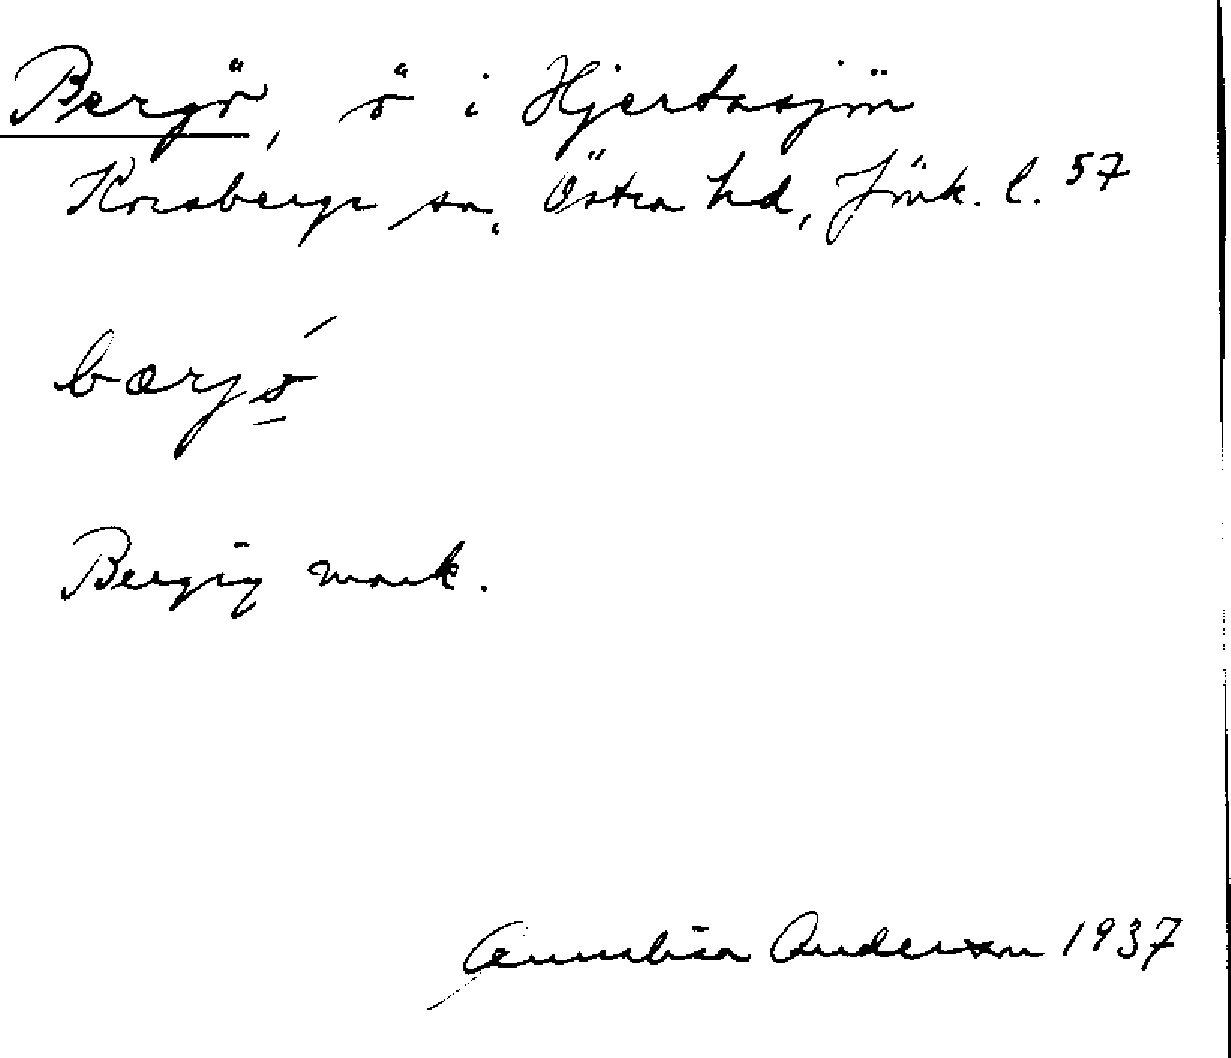 Bergö, ö i Hjertasjön
Korsberga sn, Östra hd, Jönk. l. 57
bærjö́
Bergig mark.
Annalisa Anderson 1937